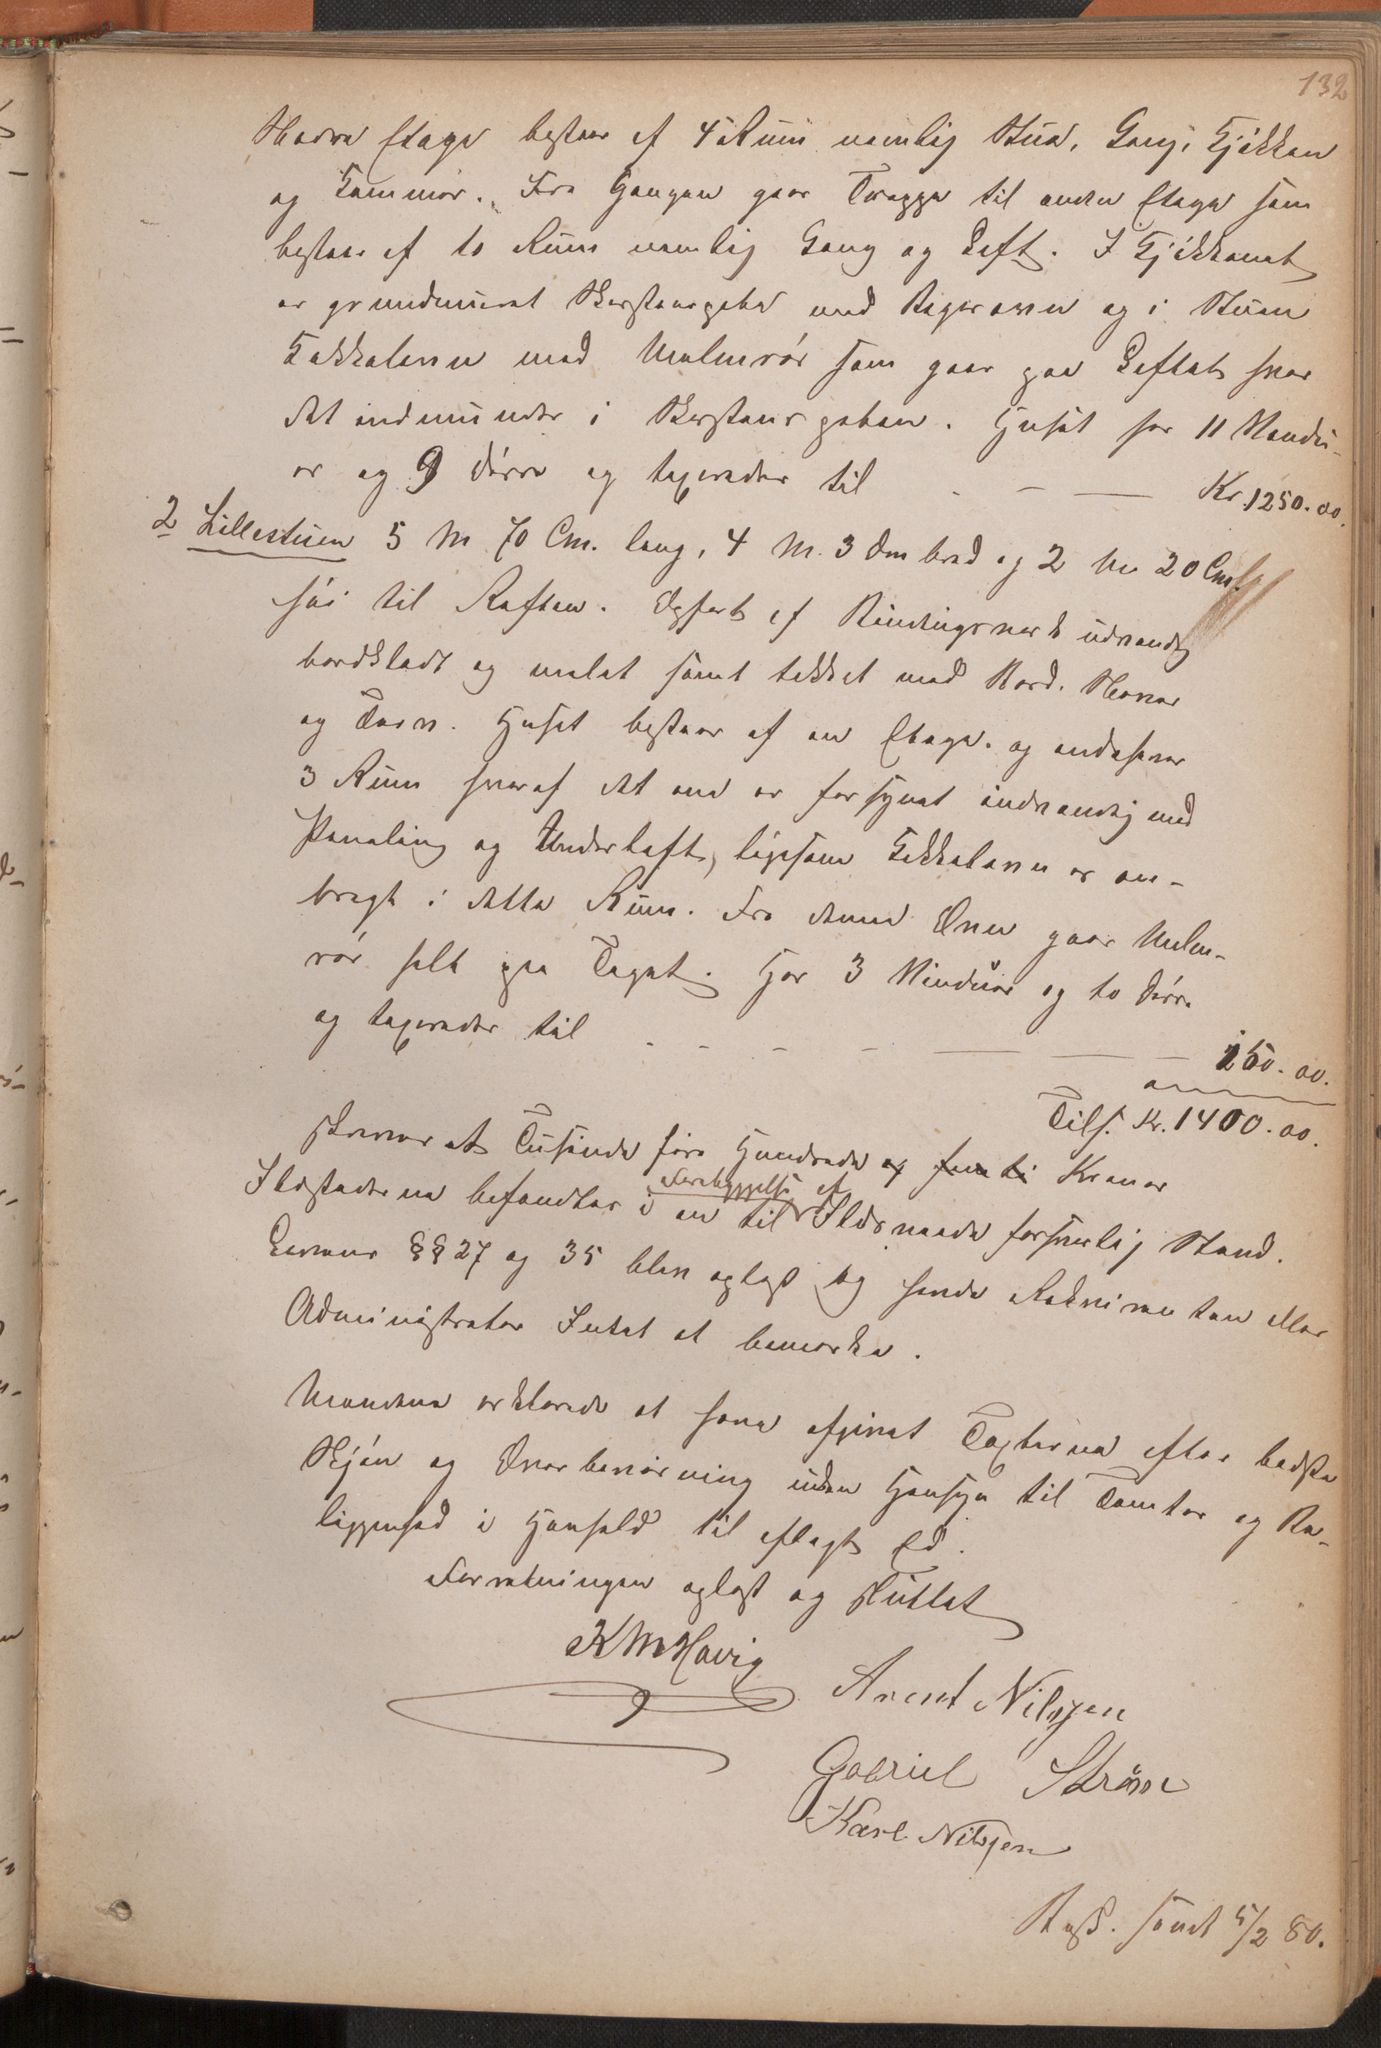 132
Nedre Etage bestaar af 4 Rum nemlig Stue, Gang, Kjøkken
og Kammer. Fra Gangen gaar Trappe til anden Etage som
bestaar af to Rum nemlig Gang og Loft. I Kjøkkenet
er grundmuret Skorstenspibe med Bagerovn og i Stuen
Kakkelovn med Malmrør som gaar paa Loftet hvor
det indmunder i Skorstenspiben. Huset har 11 Vindu-
er og 9 Døre og taxeredes til - - - Kr. 1250.00.
2 Lillestuen 5 M 70 Cm. lang, 4 M. 3 Dm bred og 2 M 20 Cm.
høi til Raften. Opført af Bindingsverk udvendig
bordklædt og malet samt tækket med Bord, Næver
og Törv. Huset bestaar af en Etage og indeholder
3 Rum hvoraf det ene er forsynet indvendig med
Paneling og Underloft, ligesom Kakkelovn er an-
bragt i dette Rum. Fra denne Ovn gaar Malm-
rør helt paa Taget. Har 3 Vinduer og to Døre
og taxeredes til - - - - - - - 150.00.
Tils. Kr. 1400.00.
skriver et Tusinde fire Hundrede og femti Kroner
Ildstederne befandtes i en til Forebyggelse af Ildsvaade forsvarlig Stand.
Lovens §§ 27 og 35 blev oplæst og havde Rekvirenten eller
Administrator Intet at bemærke.
Mændene erklærede at have afgivet Taxterne efter bedste
Skjøn og Overbevisning uden Hensyn til Tomter og Be-
liggenhed i Henhold til aflagt Ed.
Forretningen oplæst og sluttet
K M Havig
Arent Nilsjen
Gabriel Strøm
Karl Nilsjen
Besk. sendt 5/2 80.